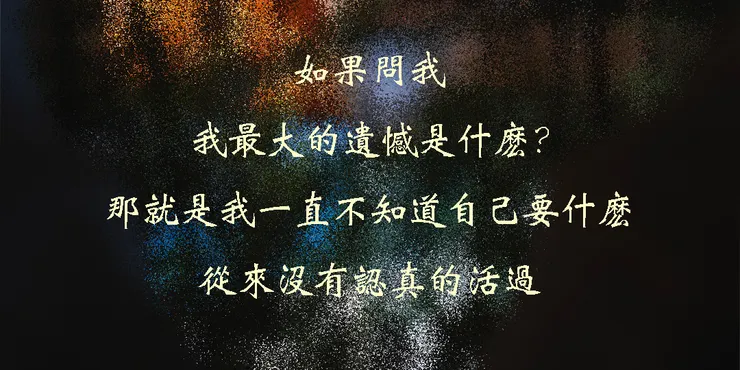 如果問我
我最大的遺憾是什麽?
那就是我一直不知道自己要什麽
從來沒有認真的活過